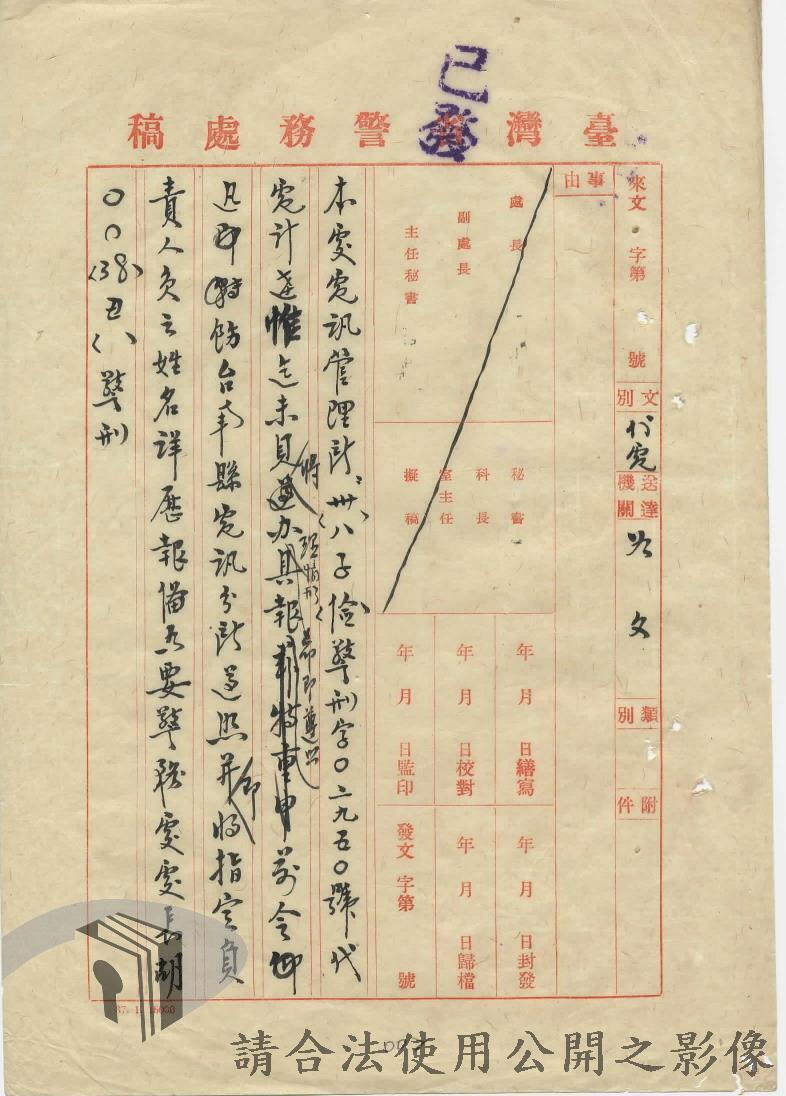 已發
臺灣省警務處稿
來文 字第 號
文別 代電
送達機關 
類別
附件
事由
處長
副處長
主任秘書
秘書
科長
室主任
擬稿
年 月 日繕寫
年 月 日校對
年 月 日監印
年 月 日封發
年 月 日歸檔
發文 字第 號
本處電訊管理所：卅八子儉警刑字〇二九五〇號代
電計達惟迄未見將辦理情形具報
希即遵照前令
迅即轉飭台南縣電訊分所遵照并即將指定負
責人員之姓名詳歷報備為要警務處處長胡
〇〇（38）丑（ ）警刑
37.1.15000
請合法使用公開之影像